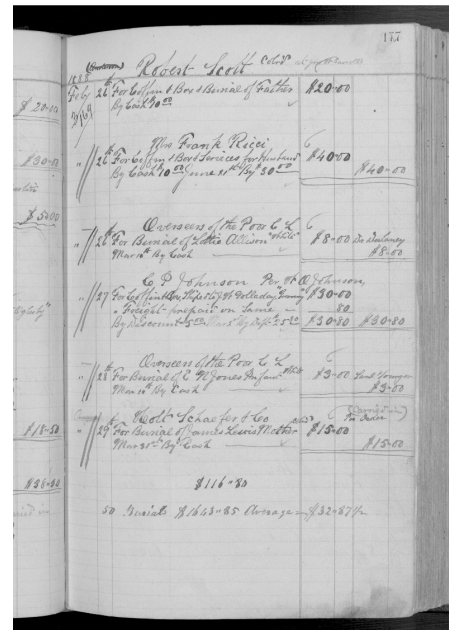 177
Robert Scott Cold
1888
Feby 26th For Coffin & Box & Burial of Father $20=00
By Cash 10 00
Mrs Frank Ricci
" 26th For Coffin & Box & Services for Husband $40=00
By Cash 10 00 June 21st By 30 00 $40=00
Overseers of the Poor C. L.
" 26th For Burial of Lottie Allison "White" $8=00 Dr Dulaney
Mar 10th By Cash $8=00
C. P. Johnson Per W A Johnson,
" 27 $30=00
" Freight prepaid on Same 80
By Discount 5 00 $30=80 $30=80
Overseers of the Poor C. L
" 28th For Burial of C W Jones Infant White $3=00
Mar 10th By Cash $3=00
Wolt Schaefer & Co
" 29th For Burial of James Lewis Mother $15=00
Mar 31st By Cash $15=00
$116=80
50 Burials $1643=85 Average $32=87
$20=00
$30=00
$5=00
$18=50
$38=50